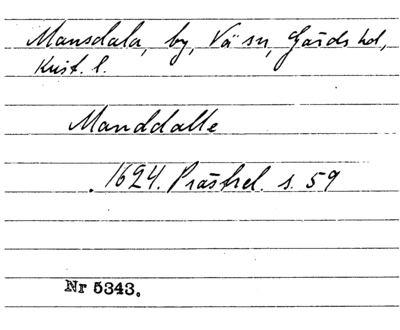 Mansdala, by, Vä sn, Gärds hd,
Krist. l.
Manddalle
1624. Prästrel. s. 59
Nr 5343.